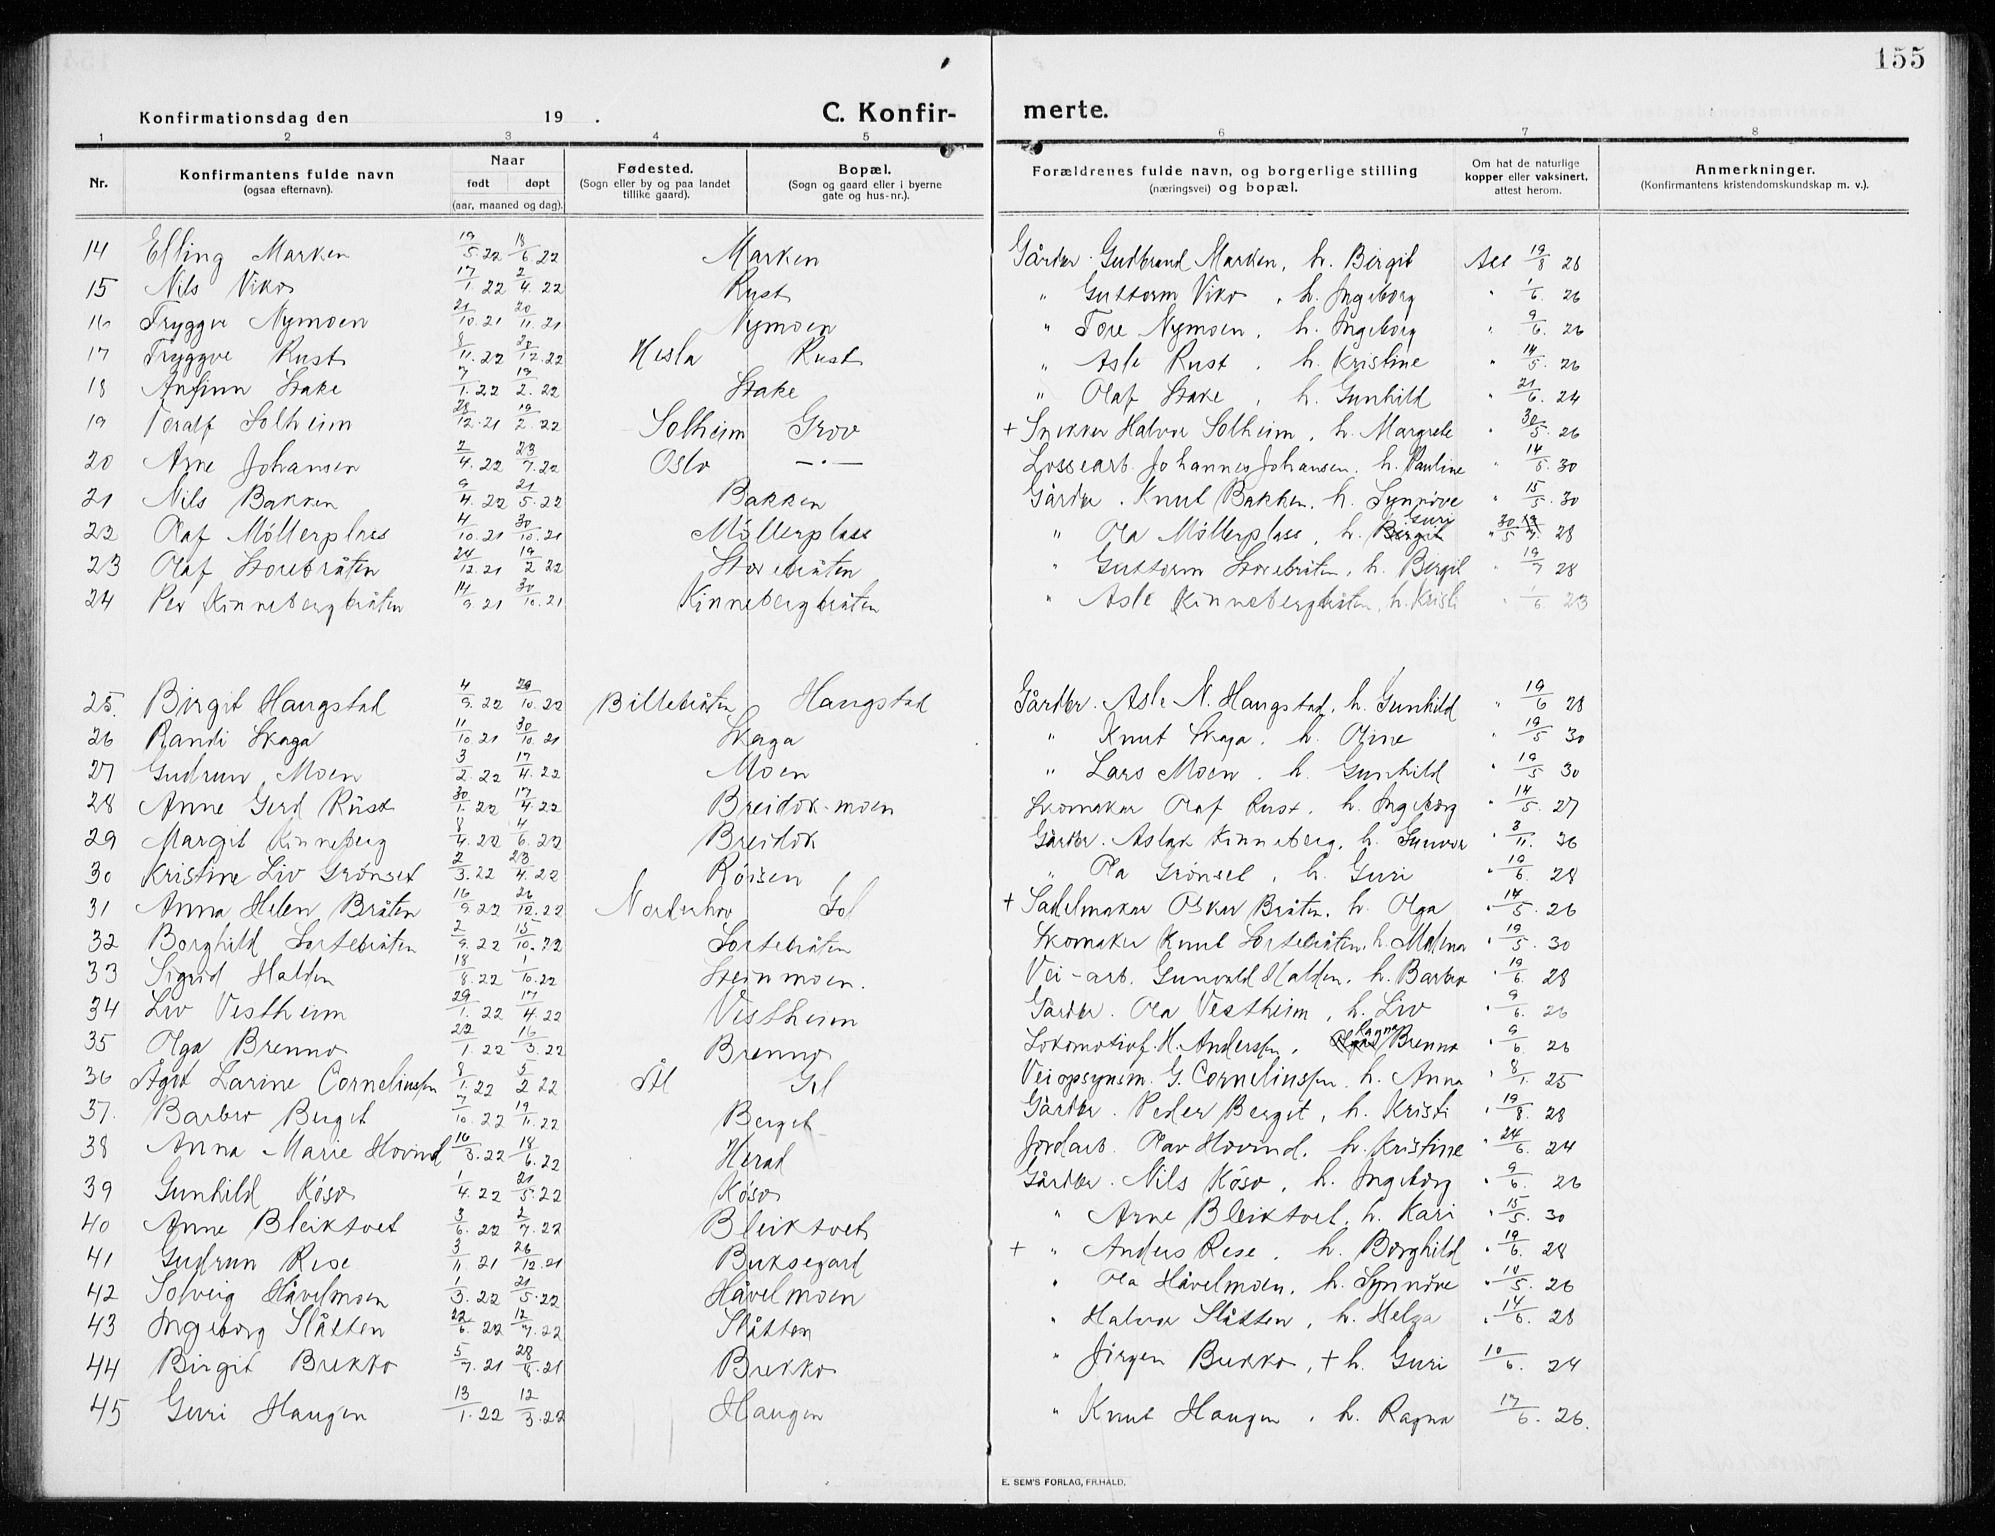 155
Konfirmationsdag den 19 .
C. Konfir-
merte.
1 2 3 4 5 6 7 8
Nr.
Konfirmantens fulde navn
(ogsaa efternavn).
Naar
født døpt
(aar, maaned og dag).
Fødested.
(Sogn eller by og paa landet
tillike gaard).
Bopæl.
(Sogn og gaard eller i byerne
gate og hus-nr.).
Forældrenes fulde navn, og borgerlige stilling
(næringsvei) og bopæl.
Om hat de naturlige
kopper eller vaksinert,
attest herom.
Anmerkninger.
(Konfirmantens kristendomskundskap m. v.).
14 Elling Marken 19/5.22 18/6.22 Marken Gårdbr. Gudbrand Marken, h. Birgit 19/8 28
15 Nils Viko 17/1.22 2/4.22 Rust " Guttorm Viko, h. Ingeborg " 1/6. 26
16 Tryggve Nymoen 21/10.21 20/11.21 Nymoen " Tore Nymoen, h. Ingeborg " 9/6. 26
17 Tryggve Rust 8/11.22 20/12.22 Hesla Rust " Asle Rust, h. Kristine " 14/5. 26
18 Anfinn Stake 7/1.22 19/2.22 Stake " Olaf Stake, h. Gunhild " 21/6. 24
19 Toralf Solheim 28/12.21 19/2.22 Solheim Grov + Snekker Halvor Solheim, h. Margrete " 30/5. 26
20 Arne Johansen 2/4.22 23/7.22 Oslo —·— Lossearb. Johannes Johansen. h. Pauline " 14/5. 30
21 Nils Bakken 9/4.22 21/5.22 Bakken Gårdbr. Knut Bakken, h. Synnöve " 15/5. 30
22 Olaf Möllerplass 4/10.21 30/10.21 Möllerplass " Ola Möllerplass, h. Birgit Guri " 30/5 28
23 Olaf Storebråten 24/12.21 19/2.22 Storebråten " Guttorm Storebråten, h. Birgit " 19/7 28
24 Per Kinnebergbråten 14/9.21 30/10.21 Kinnebergbråten " Asle Kinnebergbråten, h. Kristi " 1/6. 23
25. Birgit Haugstad 4/9.22 29/10.22 Billebråten Haugstad Gårdbr. Asle N. Haugstad, h. Gunhild " 19/6 28
26 Randi Skaga 11/10 21 30/10.21 Skaga " Knut Skaga. h. Oline " 19/5 30
27 Gudrun Moen 3/2.22 17/4.22 Moen " Lars Moen. h. Gunhild " 19/5 30
28 Anne Gerd Rust 30/1.22 17/4.22 Breidok-moen Skomaker Olaf Rust. h. Ingeborg " 14/5. 27
29 Margit Kinneberg 8/4.22 4/6.22 Breidok Gårdbr. Aslak Kinneberg, h. Gunvor " 3/11. 36
30 Kristine Liv Grönset 2/3.22 23/4.22 Röisen " Ola Grönset, h. Guri " 19/6. 28
31 Anna Helen Bråten 16/9 22 26/12.22 Norderhov Gol + Sadelmaker Oskar Bråten, h. Olga " 14/5. 26
32 Borghild Sortebråten 2/9.22 15/10.22 Sortebråten Skomaker Knut Sortebråten, h. Malena " 19/5. 30
33 Sigrid Halden 18/8.22 1/10.22 Steinmoen. Vei-arb. Gunvald Halden, h. Barbro " 19/6. 28
34 Liv Vestheim 29/1.22 17/4.22 Vestheim Gårdbr. Ola Vestheim, h. Liv " 9/6. 26
35 Olga Brenno 22/1.22 16/3.22 Brenno Lokomotivf. H. Anderssen, Ragna Brenno " 9/6. 26
36 Ågot Larine Corneliussen 8/1.22 5/2 22 Ål Gol Veiopsynsm. G. Corneliussen, h. Anna " 8/1. 25
37. Barbro Berget 7/10.22 19/11.22 Berget Gårdbr. Peder Berget, h. Kristi " 19/8. 28
38 Anna Marie Hovind 16/3.22 18/6.22 Herad Jordarb. Olav Hovind, h. Kristine " 24/6. 24
39 Gunhild Köso 1/4.22 21/5.22 Köso Gårdbr. Nils Köso, h. Ingeborg " 9/6. 26
40 Anne Bleiktvet 3/6.22 2/7.22 Bleiktvet " Arne Bleiktvet, h. Kari " 15/5. 30
41 Gudrun Rese 3/11.21 26/12.21 Buksegard + " Anders Rese, h. Borghild " 19/6. 28
42 Solveig Håvelmoen 1/3.22 21/5.22 Håvelmoen " Ola Håvelmoen, h. Synnöve " 10/5. 26
43 Ingeborg Slåtten 22/6.22 12/7.22 Slåtten " Halvor Slåtten, h. Helga " 14/6. 28
44 Birgit Brekko 5/7.21 28/8.21 Brekko " Jörgen Brekko, + h. Guri 10/6. 24
45 Guri Haugen 13/1.22 12/3.22 Haugen " Knut Haugen, h. Ragna 17/6. 26.
E. SEM'S FORLAG, FR.HALD.